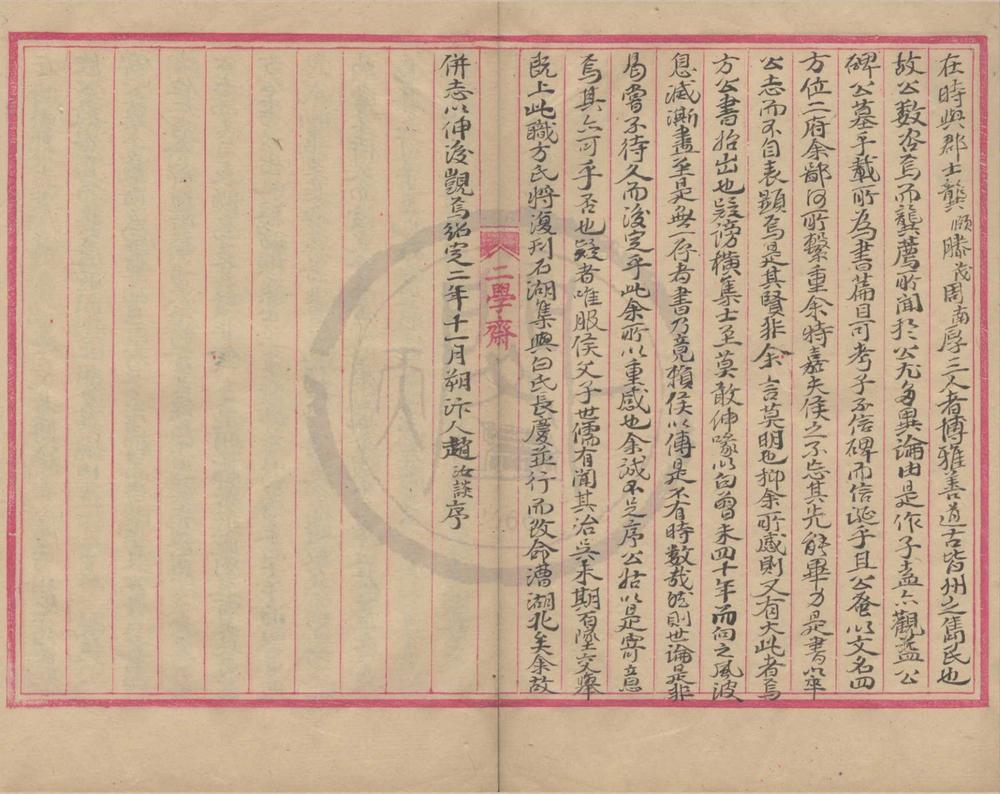 在時與郡士龔頤滕茂周南厚三人者博雅善道古皆州之雋民也
故公數咨焉而龔薦所聞於公尤多異論由是作子盍亦觀益公
碑公墓乎載所為書篇目可考子不信碑而信誕乎且公蚤以文名四
方位二府余鄙何所繫重余特嘉夫侯之不忘其先能畢力是書以卒
公志而不自表顯焉是其賢非余言莫明也抑余所感則又有大此者焉
方公書始出也疑謗橫集士至莫敢伸喙以白曾未四十年而向之風波
息滅澌盡至是無一存者書乃竟賴侯以傳是不有時數哉然則世論是非
曷嘗不待久而後定乎此余所以重感也余誠不足序公姑以是寄意
焉其亦可乎否也疑者唯服侯父子世儒有聞其治吳未期百墜交舉
既上此職方氏將復刊石湖集與白氏長慶並行而改命漕湖北矣余故
併志以伸後觀焉紹定二年十一月朔汴人趙汝談序
二學齋